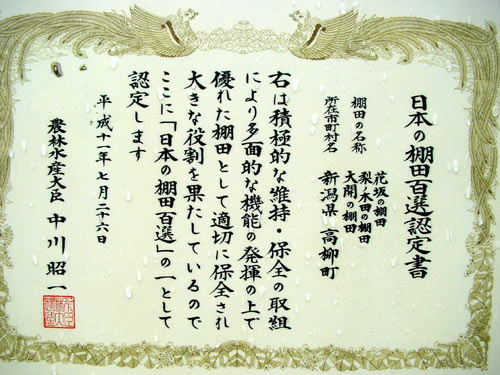 日本の棚田百選認定書
棚田の名称 花坂の棚田
梨ノ木田の棚田
大開の棚田
所在市町村名 新潟県 高柳町
右は積極的な維持・保全の取組
により多面的な機能の発揮の上で
優れた棚田として適切に保全され
大きな役割を果たしているので
ここに「日本の棚田百選」の一として
認定します
平成十一年七月二十六日
農林水産大臣 中川昭一